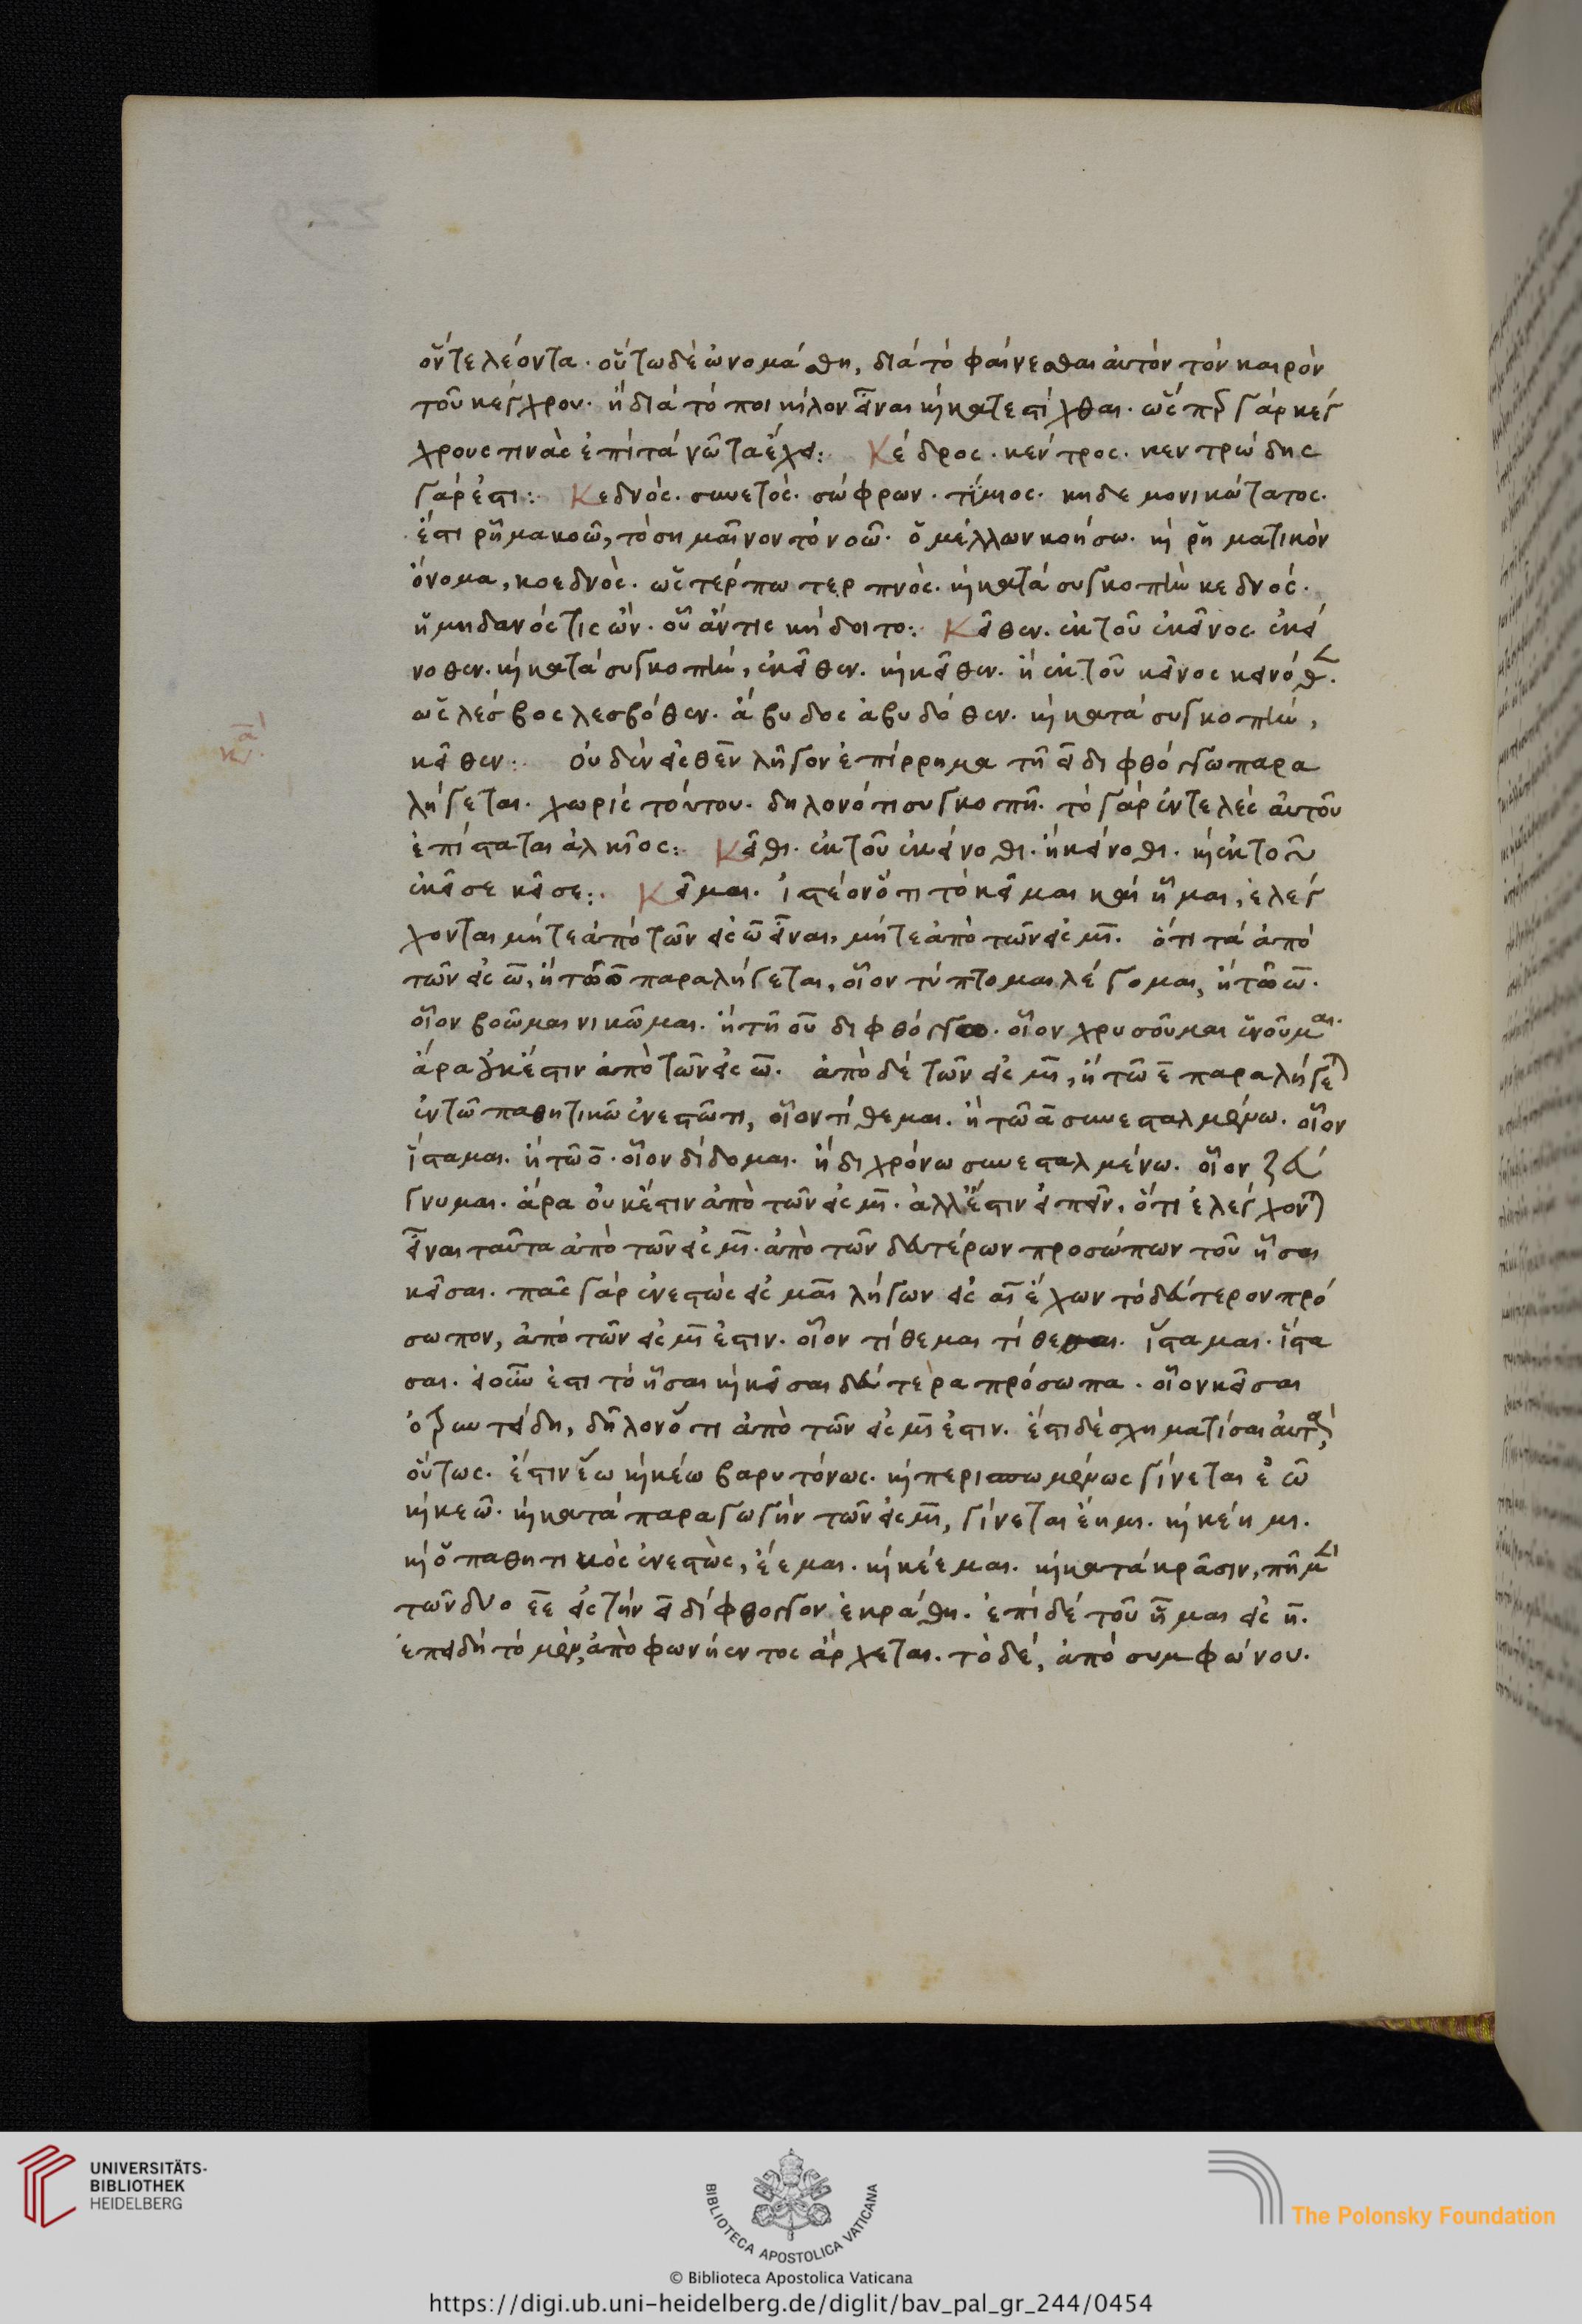 ὃν τελέοντα. οὕτω δὲ ὠνομάσθη, διὰ τὸ φαίνεσθαι αὐτὸν τὸν καιρὸν
τοῦ κέγχρου. ἢ διὰ τὸ ποικίλον εἶναι καὶ κατεστίχθαι. ὥσπερ γὰρ κέγ
χρους τινὰς ἐπὶ τὰ νῶτα ἔχει: Κέδρος. κέντρος. κεντρώδης
γάρ ἐστι: Κεδνός. συνετός. σώφρων. τίμιος. κηδεμονικώτατος.
ἔστι ῥῆμα κοῶ, τὸ σημαῖνον τὸ νοῶ. ὁ μέλλων κοήσω. καὶ ῥηματικὸν
ὄνομα, κοεδνὸς. ὡς τέρπω τερπνὸς. καὶ κατὰ συγκοπὴν κεδνός.
ἢ μηδανός τις ὤν. οὗ ἄν τις κήδοιτο: Κεῖθεν. ἐκ τοῦ ἐκεῖνος ἐκεί
νοθεν. καὶ κατὰ συγκοπὴν, ἐκεῖθεν. καὶ κεῖθεν. ἢ ἐκ τοῦ κεῖνος κεινόθεν.
ὡς λέσβος λεσβόθεν. ἄβυδος ἀβυδόθεν. καὶ κατὰ συγκοπὴν,
κεῖθεν: οὐδὲν εἰς θεν λῆγον ἐπίρρημα τῇ ει διφθόγγω παρα
λήγεται. χωρὶς τούτου. δηλονότι συγκοπῇ. τὸ γὰρ ἐντελὲς αὐτοῦ
ἐπίσταται ἀλκμος: Κεῖθι. ἐκ τοῦ ἐκείνοθι. ἢ κείνοθι. καὶ ἐκ τοῦ
ἐκεῖσε κεῖσε: Κεῖμαι. ἰστέον ὅτι τὸ κεῖμαι καὶ ἧμαι, ἐλέγ
χονται μήτε ἀπὸ τῶν εἰς ω εἶναι, μήτε ἀπὸ τῶν εἰς μι. ὅτι τὰ ἀπὸ
τῶν εἰς ω, ἢ τῶ ο παραλήγεται, οἷον τύπτομαι λέγομαι, ἢ τῶ ω.
οἷον βοῶμαι νικῶμαι. ἢ τῇ ου διφθόγγω. οἷον χρυσοῦμαι ἑνοῦμαι.
ἄρα οὐκ ἔστιν ἀπὸ τῶν εἰς ω. ἀπὸ δὲ τῶν εἰς μι, ἢ τῶ ε παραλήγεται
ἐν τῶ παθητικῶ ἐνεστῶτι, οἷον τίθεμαι. ἢ τῶ α συνεσταλμένω. οἷον
ἵσταμαι. ἢ τῶ ο. οἷον δίδομαι. ἢ διχρόνω συνεσταλμένω. οἷον ζεύ
γνυμαι. ἄρα οὐκ ἔστιν ἀπὸ τῶν εἰς μι. ἀλλ' ἔστιν εἰπεῖν, ὅτι ἐλέγχονται
εἶναι ταῦτα ἀπὸ τῶν εἰς μι. ἀπὸ τῶν δευτέρων προσώπων τοῦ ἧσαι
κεῖσαι. πᾶς γὰρ ἐνεστὼς εἰς μαι λήγων εἰς αι ἔχων τὸ δεύτερον πρό
σωπον, ἀπὸ τῶν εἰς μι ἐστιν. οἷον τίθεμαι τίθεσαι. ἵσταμαι. ἵστα
σαι. εἰ οὖν ἐστι τὸ ἧσαι καὶ κεῖσαι δεύτερα πρόσωπα. οἷον κεῖσαι
δηλονότι ἀπὸ τῶν εἰς μι ἐστιν. ἔστι δὲ σχηματίσαι αὐτὰ
οὕτως. ἔστιν ἕω καὶ κέω βαρυτόνως. καὶ περισπωμένως γίνεται ἑῶ
καὶ κεῶ. καὶ κατὰ παραγωγὴν τῶν εἰς μι, γίνεται ἕημι. καὶ κέημι.
καὶ ὁ παθητικὸς ἐνεστὼς, ἕεμαι. καὶ κέεμαι. καὶ κατὰ κρᾶσιν, πῆ μὲν
τῶν δύο εε εἰς τὴν ει δίφθογγον ἐκράθη. ἐπὶ δὲ τοῦ ἧμαι εἰς η.
ἐπειδὴ τὸ μὲν, ἀπὸ φωνήεντος ἄρχεται. τὸ δὲ, ἀπὸ συμφώνου.
UNIVERSITÄTS-
BIBLIOTHEK
HEIDELBERG
BIBLIOTECA APOSTOLICA VATICANA
The Polonsky Foundation
© Biblioteca Apostolica Vaticana
https://digi.ub.uni-heidelberg.de/diglit/bav_pal_gr_244/0454